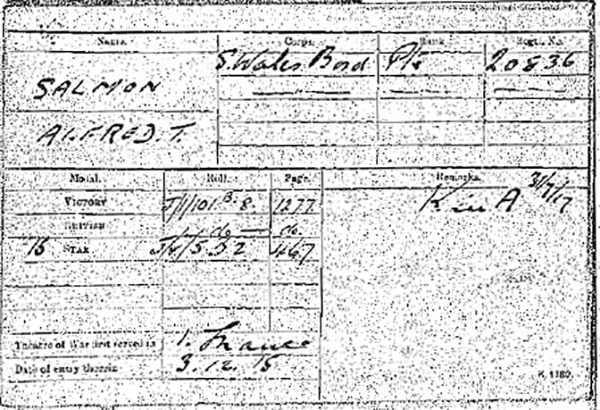 Name. Corps. Rank. Regtl. No.
SALMON S. Wales Bord Pte 20836
ALFRED. T.
Medal. Roll. Page. Remarks.
VICTORY J/1/101 B. 8. 1277 K in A 31/7/17
BRITISH do do.
15 STAR 467
Theatre of War first served in 1. France
Date of entry therein 3. 12. 15
K. 1380.